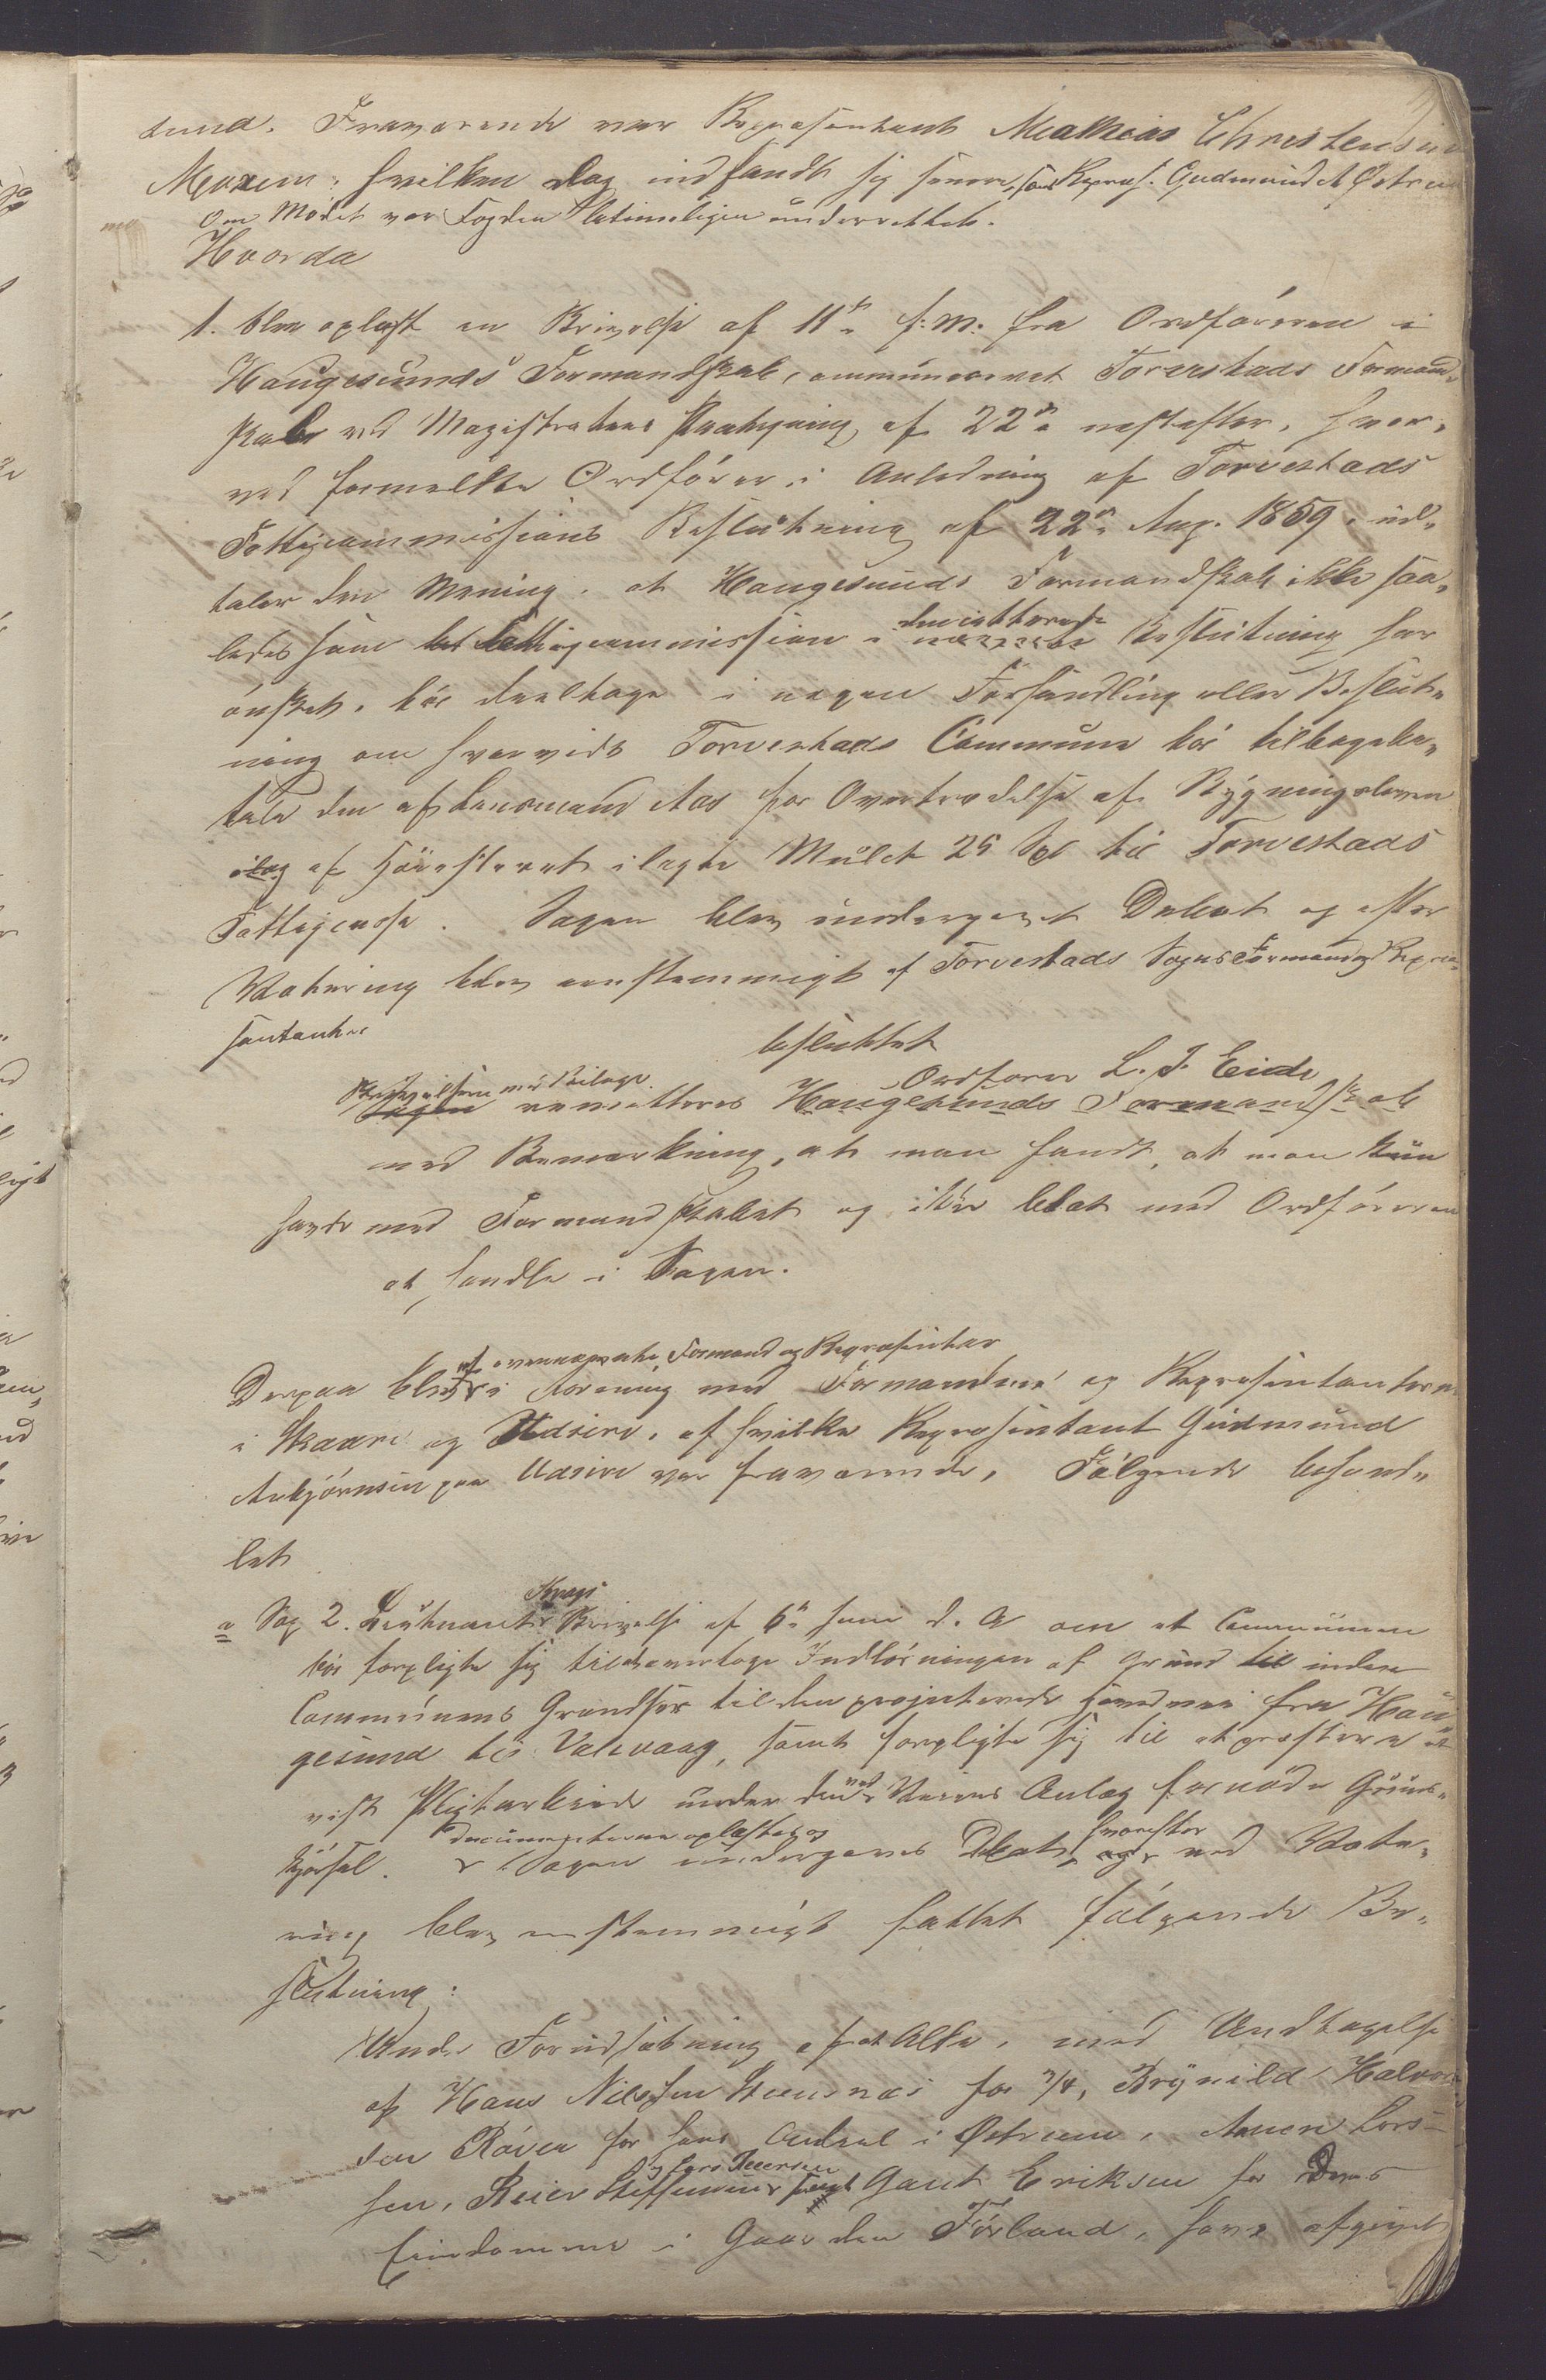 tuna. Fraværende var Repræsentant Mathias Christensen
Moxeim; hvilken dog indfandt sig senere, som Repræs. Gudmund A Østrem
Om Mödet var Fogden betimeligen underrettet.
Hvorda
1. blev oplæst en Skrivelse af 11te f. M. fra Ordföreren i
Haugesunds Formandskab, communiceret Torvestads Formand-
skab ved Magistratens Paategning af 22de næstefter, hvor-
ved formeldte Ordförer i Anledning af Torvestads
Fattigcommissions Beslutning af 22de Aug. 1859, ud-
taler den Mening, at Haugesunds Formandskab ikke saa-
ledes som det Fattigcommission i Beslutning har
önsket, bör deeltage i nogen Forhandling eller Beslut-
ning om hvorvidt Torvestads Commune bör tilbagebe-
tale den af Lensmand Aas for Overtrædelse af Bygningsloven
ilag af Höiesteret ilagte Mulct 25 Spd til Torvestads
Fattigcasse. Sagen blev undergivet Debat og efter
Votering blev eenstemmigt af Torvestads Sogns Formænd og Repræ-
sentanter
besluttet
Ordfører L. J. Eide
Skrivelsen med Bilage
Sagen remitteres Haugesunds Formandskab
med Bemærkning, at man fandt, at man kun
havde med Formandskabet og ikke blot med Ordföreren
at handle i Sagen.
af ovennævnte Formænd og Repræsentanter
Derpaa blev i Forening med Formændene og Repræsentanterne
i Skaare og Udsire, af hvilke Repræsentant Gudmund
Asbjörnsen paa Udsire var fraværende, Fölgende behand-
let
Krags
a Sag 2. Leutnant Skrivelse af 6te Juni d. A om at Communen
bör forpligte sig til at overtage Indlösningen af Grund til inden
Communens Grændser til den projecterede Hovedvei fra Hau-
gesund til Valevaag, samt forpligte sig til at præstere
vist Pligtarbeide under den ved Veiens Anlæg fornödne Gruus-
Documenterne oplæstes og hvorefter
kjörsel. Sagen undergaves Debat og ved Vote-
ring blev enstemmigt fattet fölgende Be-
slutning:
Under Forudsætning af at Alle, med Undtagelse
af Hans Nilssen Steensnæs for 3/4, Brynild Halvor-
sen Röver for hans Andeel i Østrem, Lars-
og Lars Iversen
sen, Reier Steffensen samt Gaut Eriksen for Deres
Eiendomme i Gaarden Förland, have afgivet